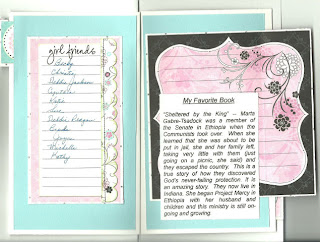 girl friends
Becky
Christy
Debbie Jackson
Kathi
Sue
Debbie Reagan
Brenda
Wendella
Kathy
My Favorite Book
"Sheltered by the King" -- Marta
Gabre-Tsadock was a member of
the Senate in Ethiopia when the
Communists took over. When she
learned that she was about to be
put in jail, she and her family left,
taking very little with them (just
going on a picnic, she said) and
they escaped the country. This is
a true story of how they discovered
God's never-failing protection. It is
an amazing story. They now live in
Indiana. She began Project Mercy in
Ethiopia with her husband and
children and this ministry is still on-
going and growing.